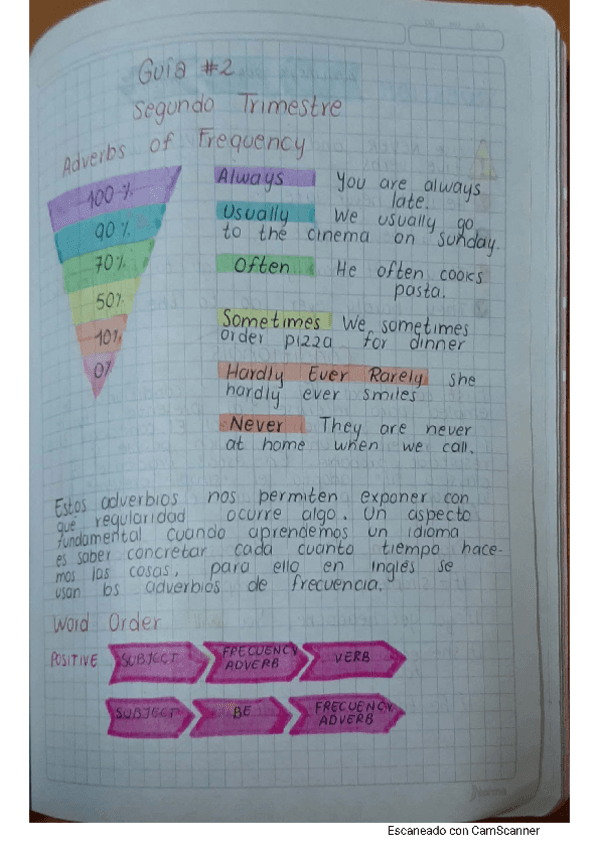 Guía #2
Segundo Trimestre
Adverbs of Frequency
100%
90%
70%
50%
10%
0%
Always You are always
late.
Usually We usually go
to the cinema on sunday.
Often He often cooks
pasta.
Sometimes We sometimes
order pizza for dinner
Hardly Ever Rarely she
hardly ever smiles
Never They are never
at home when we call.
Estos adverbios nos permiten exponer con
qué regularidad ocurre algo. Un aspecto
fundamental cuando aprendemos un idioma
es saber concretar cada cuanto tiempo hace-
mos las cosas, para ello en inglés se
usan los adverbios de frecuencia.
Word Order
POSITIVE SUBJECT FRECUENCY ADVERB VERB
SUBJECT BE FRECUENCY ADVERB
Norma
Escaneado con CamScanner